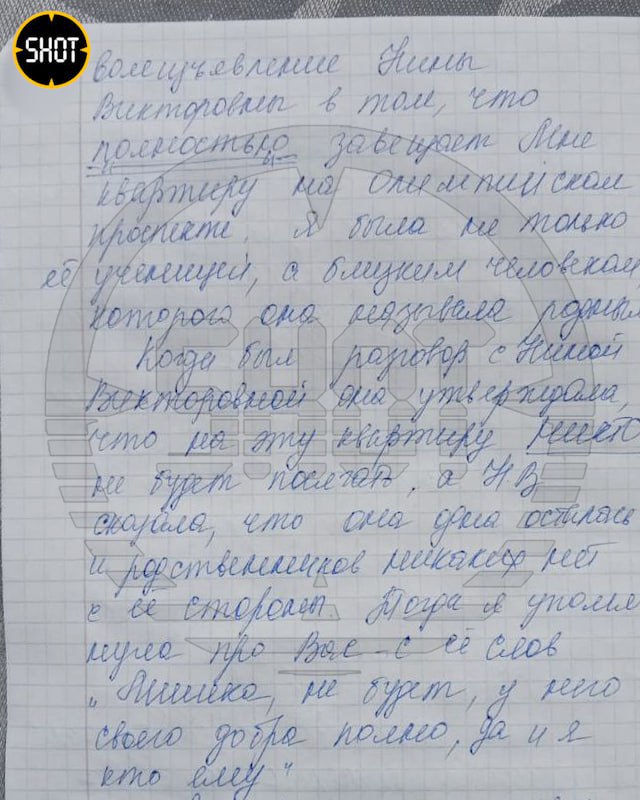 SHOT
волеизъявление Нины
Викторовны в том, что
полностью завещает Мне
квартиру на Олимпийском
проспекте. Я была не только
её ученицей, а близким человеком,
которого она называла родным
Когда был разговор с Ниной
Викторовной она утверждала,
что на эту квартиру никто
не будет посягать, а НВ
сказала, что она одна осталась
и родственников никаких нет
с её стороны. Тогда я упомя
нула про Вас - с её слов
"Мишка, не будет, у него
своего добра полно, да и я
кто ему"